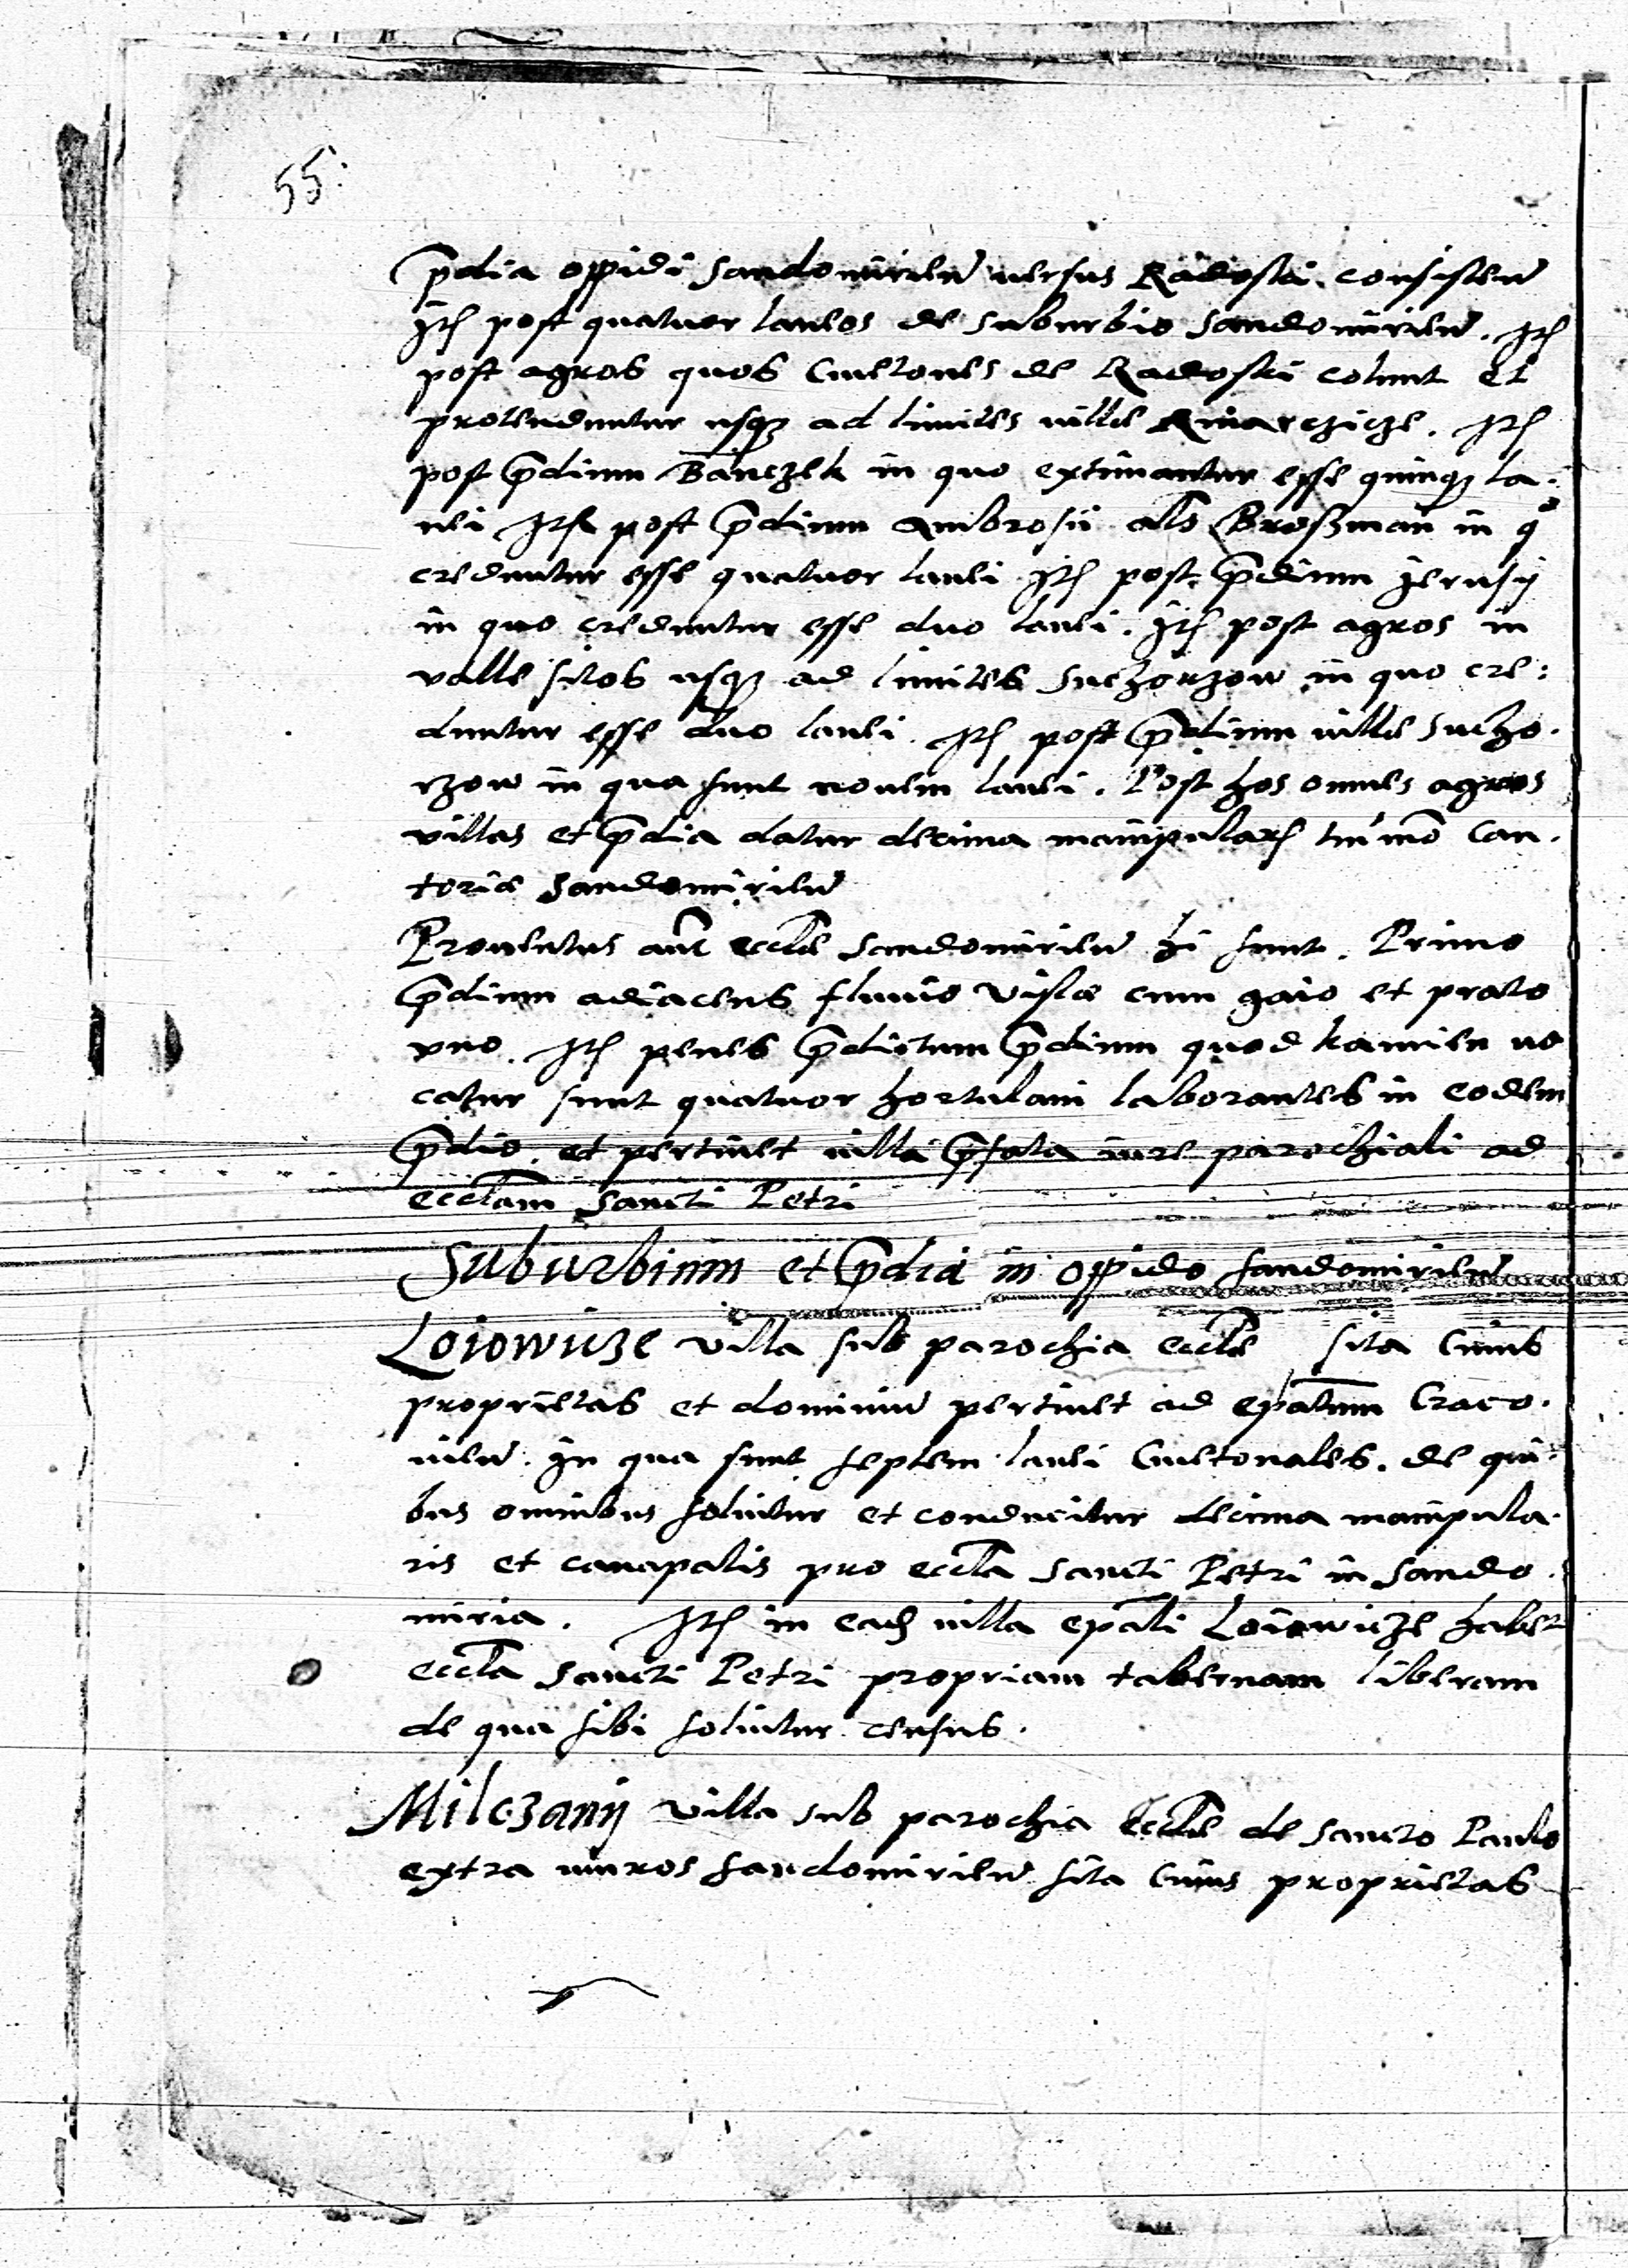 55:
p̄dia oppidi Sandomirien̄ uersus Radoski. consisten̄
Itē post quatuor laneos de suburbio Sandomirien̄. Itē
post agros quos Cmetones de Radoski colunt et
protenduntur usqz ad limites ville Kmarczicze. Itē
post p̄dium Banczek in quo extimantur esse quinqz la:
nei Itē post p̄dium Ambrosii als Broszman in qͦ
creduntur esse quatuor lanei Itē post p̄dium Jerusÿ
in quo creduntur esse duo lanei. Itē post agros in
valle sitos usqz ad limites Suchorzow in quo cre:
duntur esse duo lanei. Itē post p̄dium ville Sucho.
rzow in qua sunt novem lanei. Post hos omnes agros
villas et p̄dia datur decima manipularē Can.
toriæ Sandomirien̄
Proventus aūt eccl̄e Sandomirien̄ hi sunt. Primo
p̄dium adiacens fluvio Vislæ cum gaio et prato
vno. Itē penes p̄dictum p̄dium quod kamien uo
catur sunt quatuor hortulani laborantes in eodem
p̄dio. et pertinet villa p̄fata iure parochiali ad
eccl̄am Sancti Petri
Suburbium et p̄dia in oppido sandomirien̄
Loiowicze villa sub parochia eccl̄e sita Cuius
proprietas et dominiū pertinet ad ep̄atum Craco.
vien̄. In qua sunt septem lanei Cmetonales. de qui:
bus omnibus soluitur et conducitur decima manipula.
ris et canapalis pro eccl̄a Sancti Petri in Sando.
miria. Itē in eadē villa ep̄ali Loiowicze habet
eccl̄a Sancti Petri propriam tabernam liberam
de qua sibi soluitur census.
Milczanÿ villa sub parochia Eccl̄e de Sancto Paulo
extra muros sandomirien̄ sita Cuius proprietas